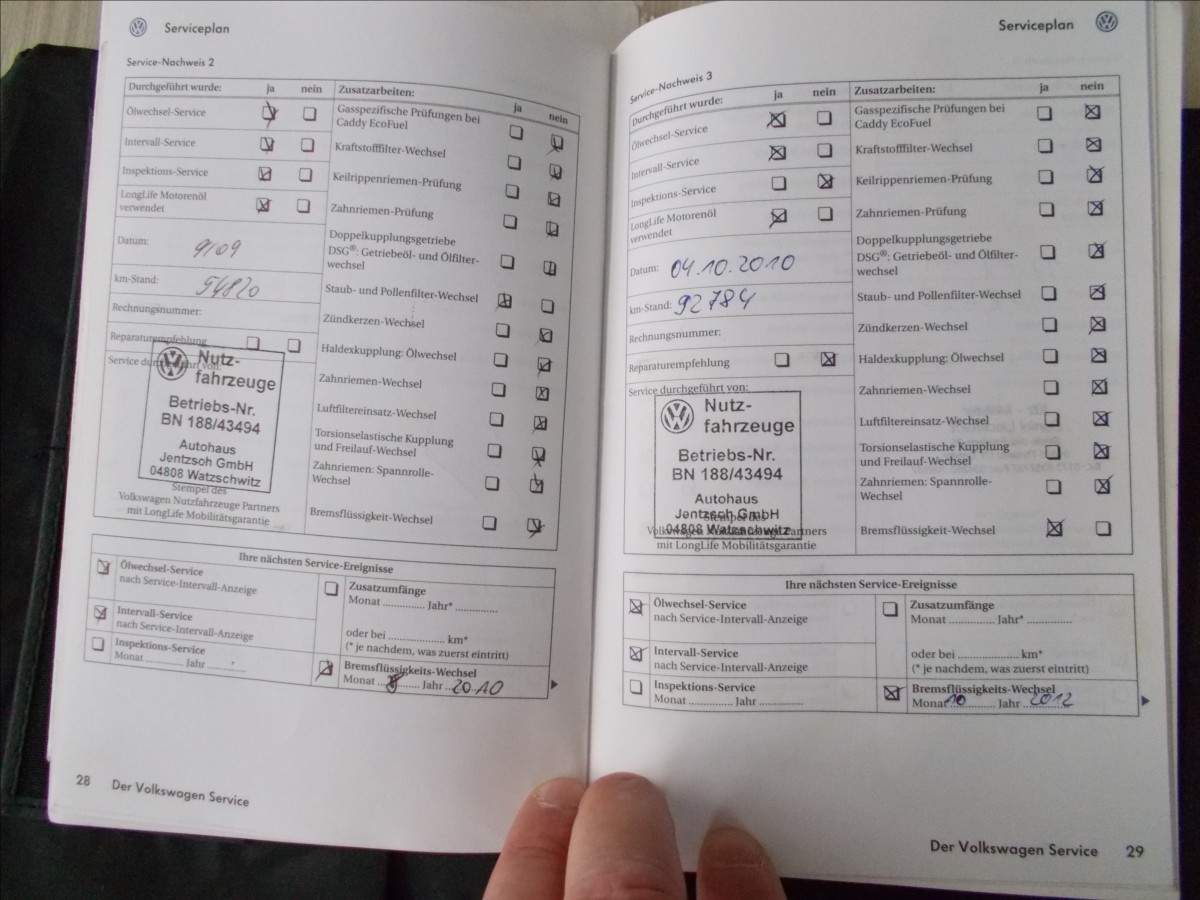 Serviceplan
Service-Nachweis 2
Durchgeführt wurde: ja nein
Ölwechsel-Service
Intervall-Service
Inspektions-Service
LongLife Motorenöl
verwendet
Datum: 9/09
km-Stand: 54820
Rechnungsnummer:
Reparaturempfehlung
Service durchgeführt von:
Nutz-
fahrzeuge
Betriebs-Nr.
BN 188/43494
Autohaus
Jentzsch GmbH
04808 Watzschwitz
Stempel des
Volkswagen Nutzfahrzeuge Partners
mit LongLife Mobilitätsgarantie
Zusatzarbeiten: ja nein
Gasspezifische Prüfungen bei
Caddy EcoFuel
Kraftstofffilter-Wechsel
Keilrippenriemen-Prüfung
Zahnriemen-Prüfung
Doppelkupplungsgetriebe
DSG®: Getriebeöl- und Ölfilter-
wechsel
Staub- und Pollenfilter-Wechsel
Zündkerzen-Wechsel
Haldexkupplung: Ölwechsel
Zahnriemen-Wechsel
Luftfiltereinsatz-Wechsel
Torsionselastische Kupplung
und Freilauf-Wechsel
Zahnriemen: Spannrolle-
Wechsel
Bremsflüssigkeit-Wechsel
Ihre nächsten Service-Ereignisse
Ölwechsel-Service
nach Service-Intervall-Anzeige
Intervall-Service
nach Service-Intervall-Anzeige
Inspektions-Service
Monat ............ Jahr ............
Zusatzumfänge
Monat ............ Jahr* ............
oder bei ................ km*
(* je nachdem, was zuerst eintritt)
Bremsflüssigkeits-Wechsel
Monat ............ Jahr 2010
28 Der Volkswagen Service
Serviceplan
Service-Nachweis 3
Durchgeführt wurde: ja nein
Ölwechsel-Service
Intervall-Service
Inspektions-Service
LongLife Motorenöl
verwendet
Datum: 04.10.2010
km-Stand: 92784
Rechnungsnummer:
Reparaturempfehlung
Service durchgeführt von:
Nutz-
fahrzeuge
Betriebs-Nr.
BN 188/43494
Autohaus
Jentzsch GmbH
04808 Watzschwitz
Stempel des
Volkswagen Nutzfahrzeuge Partners
mit LongLife Mobilitätsgarantie
Zusatzarbeiten: ja nein
Gasspezifische Prüfungen bei
Caddy EcoFuel
Kraftstofffilter-Wechsel
Keilrippenriemen-Prüfung
Zahnriemen-Prüfung
Doppelkupplungsgetriebe
DSG®: Getriebeöl- und Ölfilter-
wechsel
Staub- und Pollenfilter-Wechsel
Zündkerzen-Wechsel
Haldexkupplung: Ölwechsel
Zahnriemen-Wechsel
Luftfiltereinsatz-Wechsel
Torsionselastische Kupplung
und Freilauf-Wechsel
Zahnriemen: Spannrolle-
Wechsel
Bremsflüssigkeit-Wechsel
Ihre nächsten Service-Ereignisse
Ölwechsel-Service
nach Service-Intervall-Anzeige
Intervall-Service
nach Service-Intervall-Anzeige
Inspektions-Service
Monat ............ Jahr ............
Zusatzumfänge
Monat ............ Jahr* ............
oder bei ................ km*
(* je nachdem, was zuerst eintritt)
Bremsflüssigkeits-Wechsel
Monat 10 Jahr 2012
Der Volkswagen Service 29